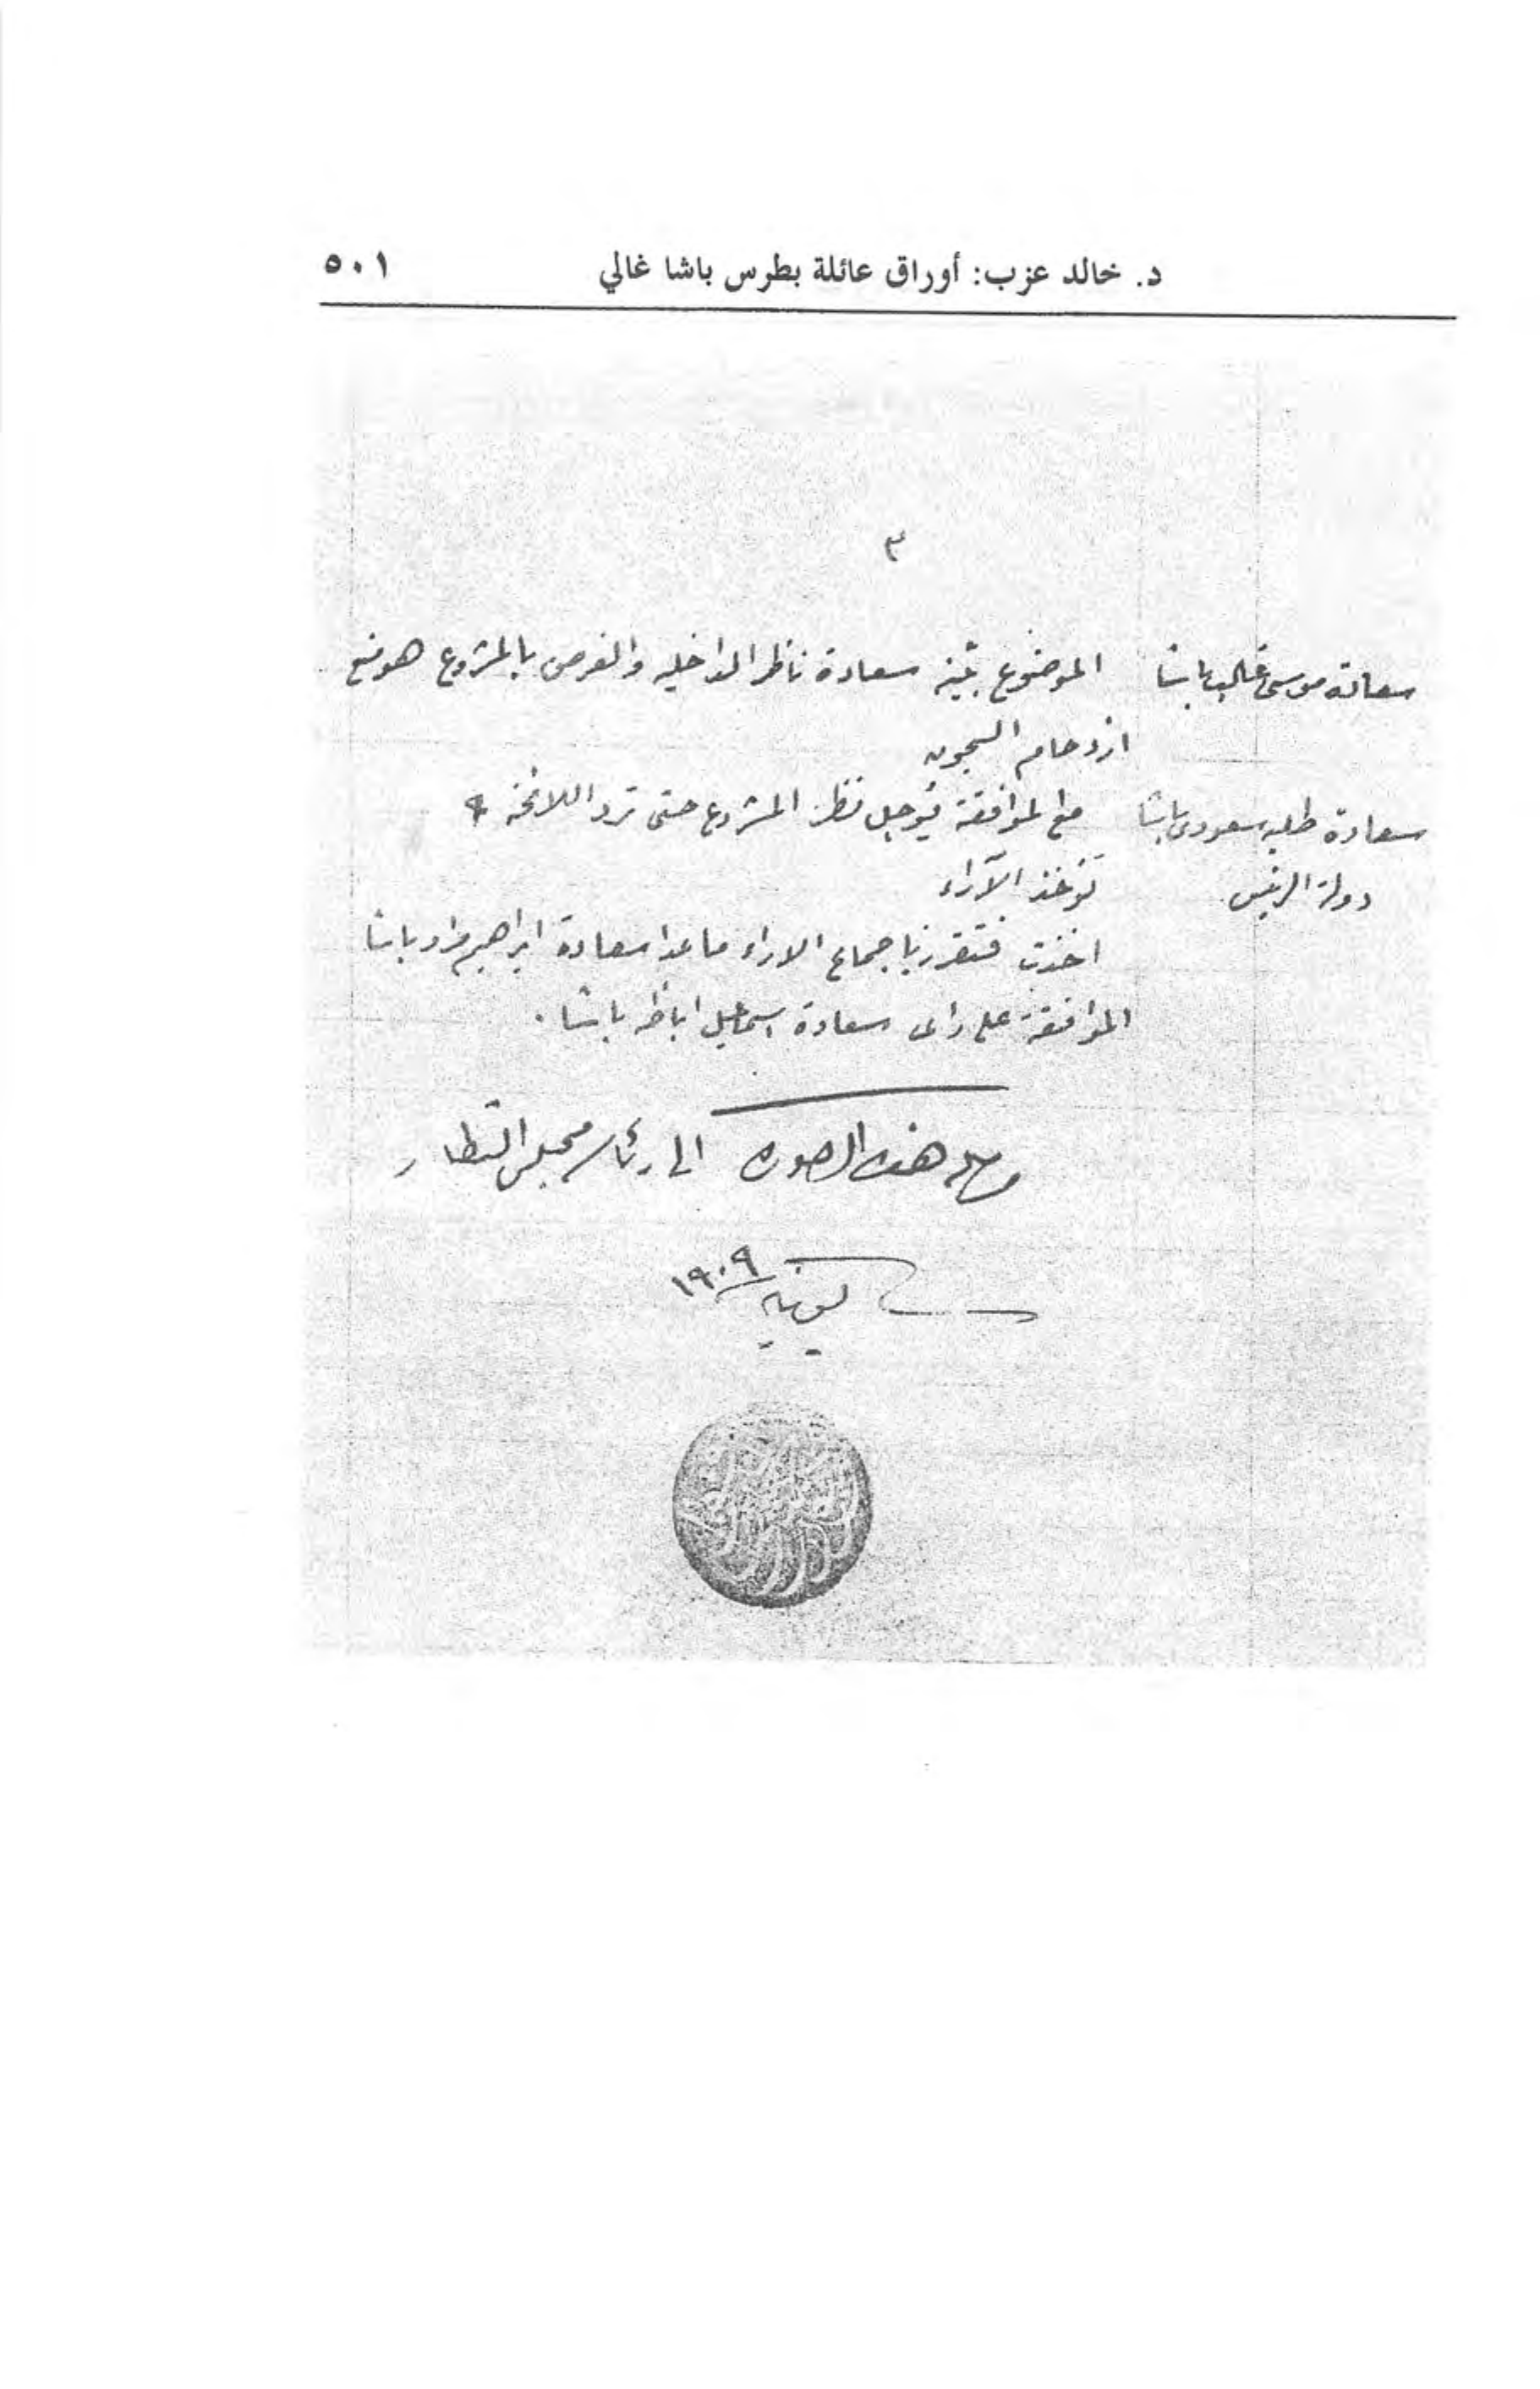 د. خالد عزب: أوراق عائلة بطرس باشا غالي ٥٠١
٣
سعادة موسى غالب باشا الموضوع بينه سعادة ناظر الداخليه والغرض بالمشروع هو منع
ازدحام السجون
سعادة طلبه سعودى باشا مع الموافقة يؤجل نظر المشروع حتى ترد اللائحة
دولة الرئيس تؤخذ الآراء
اخذت فتقرر باجماع الاراء ماعدا سعادة ابراهيم مراد باشا
الموافقة على راى سعادة اسماعيل اباظه باشا .
هذه الصوره الى رئاسة مجلس النظار
يونيه ١٩٠٩